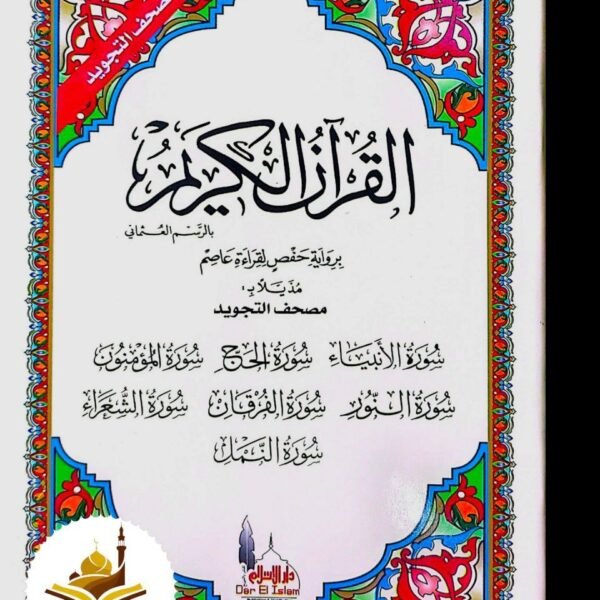 مصحف التجويد
القرآن الكريم
بالرسم العثماني
برواية حفص لقراءة عاصم
مذيلاً بـ:
مصحف التجويد
سورة الأنبياء سورة الحج سورة المؤمنون
سورة النور سورة الفرقان سورة الشعراء
سورة النمل
دار الإسلام
Dar El Islam